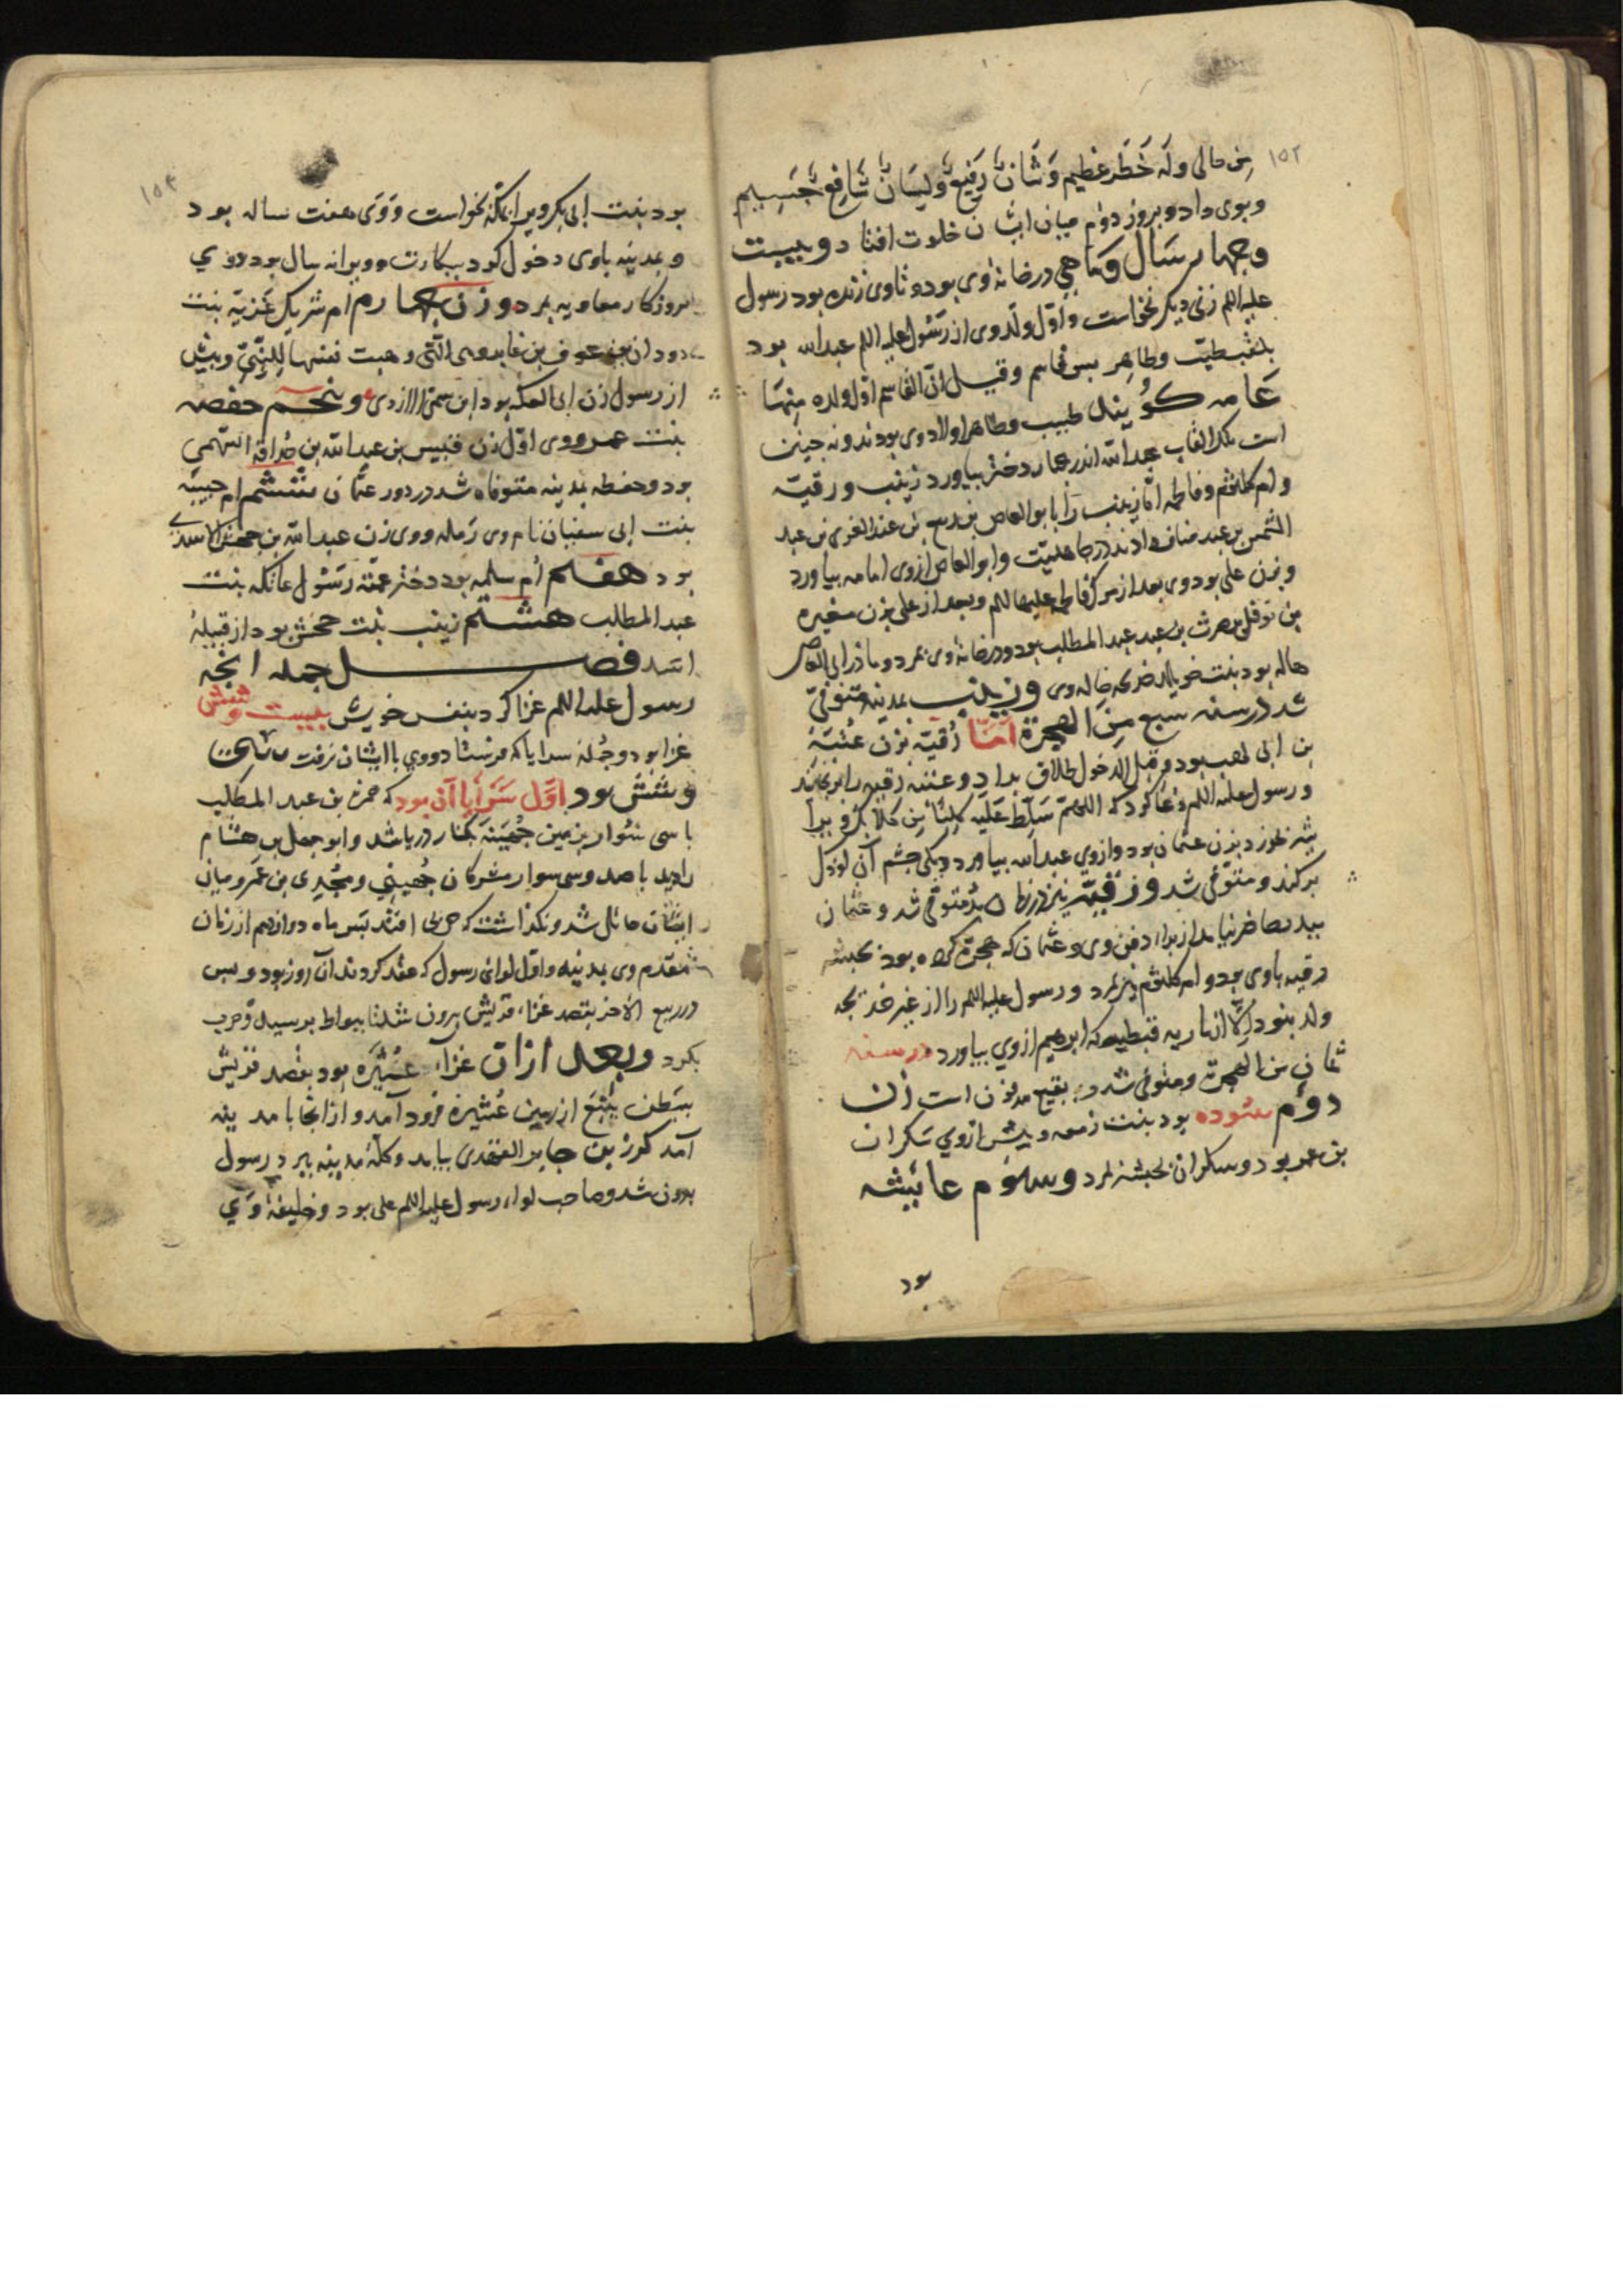 ١٥٢
من مالی وله خطر عظیم وشان رفیع ولسان شافع جسیم
وبوی داد وبروز دوم میان ایشان خلوت افتاد وبیست
وچهار سال وماهی در خانه وی بود وتا وی زنده بود رسول
علیه اللم زنی دیگر نخواست واول ولد وی از رسول علیه اللم عبدالله بود
وطاهر پس قاسم وقیل ان القاسم اول ولده منها
عامه گویند طیب وطاهر اولاد وی بودند ونه چنین
است بلکه القاب عبدالله اند وچهار دختر بیاورد زینب ورقیه
وام کلثوم وفاطمه اما زینب را بابو العاص بن ربیع بن عبد العزی بن عبد
الشمس بن عبد مناف دادند در جاهلیت وابو العاص از وی امامه بیاورد
وبزن علی بود وی بعد از مرک فاطمه علیها اللم وبعد از علی بزن مغیره
بن نوفل بن حرث بن عبد المطلب بود ودر خانه وی بمرد ومادر ابی العاص
هاله بود بنت خویلد خدیجه خاله وی وزینب بمدینه متوفی
شد در سنه سبع من الهجرة اما رقیه بزن عتبه
بن ابی لهب بود وقبل الدخول طلاق بداد وعتبه رقیه را برنجانید
ورسول علیه اللم دعا کرد که اللهم سلط علیه کلبا من کلابک وویرا
شیر بخورد بزن عثمان بود وازوی عبدالله بیاورد ودیکی چشم آن کودک
برکند ومتوفی شد ورقیه نیز در زمان بدر متوفی شد وعثمان
ببدر حاضر نیامد از برای دفن وی وعثمان که هجرة کرده بود بحبشه
رقیه باوی بود وام کلثوم نیز بمرد ورسول علیه اللم را از غیر خدیجه
ولد نبود الا از ماریه قبطیه که ابرهیم ازوی بیاورد در سنه
ثمان من الهجرة ومتوفی شد و بقیع مدفون است زن
دوم سوده بود بنت زمعه وپیش ازوی سکران
بن عمر بود وسکران بحبشه بمرد وسوم عایشه
بود
بود بنت ابی بکر ویرا بمکه بخواست ووی هفت ساله بود
وبمدینه باوی دخول کرد ببکارت وویرا نه سال بود ووی
بروزکار معاویه بمرد وزن چهارم ام شریک غزیة بنت
دودان بن عوف بن عامر وهی التی وهبت نفسها للنبی وپیش
از رسول زن ابی العکر بود ابن سمی الازدی وپنجم حفصه
بنت عمر ووی اول زن خنیس بن عبدالله بن حذافه السهمی
بود وحفصه بمدینه متوفاه شد در دور عثمان ششم ام حبیبه
بنت ابی سفیان نام وی رمله ووی زن عبدالله بن جحش الاسدی
بود هفتم ام سلمه بود دختر عمه رسول عاتکه بنت
عبد المطلب هشتم زینب بنت جحش بود از قبیله
اسد فصل جمله انچه
رسول علیه اللم غزا کرد بنفس خویش بیست وشش
غزا بود وجمله سرایا که فرستاد ووی با ایشان نرفت
وشش بود اول سرایا آن بود که حمزه بن عبد المطلب
با سی سوار بزمین جهینه بکنار دریا شد وابو جهل بن هشام
را دید باصد وسی سوار مشرکان جهینی ومجدی بن عمرو میان
ایشان حائل شد ونکذاشت که حربی افتد بتس ماه دوازدهم از زمان
مقدم وی بمدینه واول لوائی رسول که عقد کردند آن روز بود وپس
در ربیع الاخر بقصد غزاء قریش بیرون شد تا ببواط برسید وحرب
نکرد وبعد ازان غزاء عشیره بود بقصد قریش
ببطن ینبع از زمین عشیره فرود آمد وازانجا با مدینه
آمد کرز بن جابر الفهدی بیامد وکله مدینه ببرد رسول
بیرون شد وصاحب لواء رسول علیه اللم علی بود وخلیفه وی